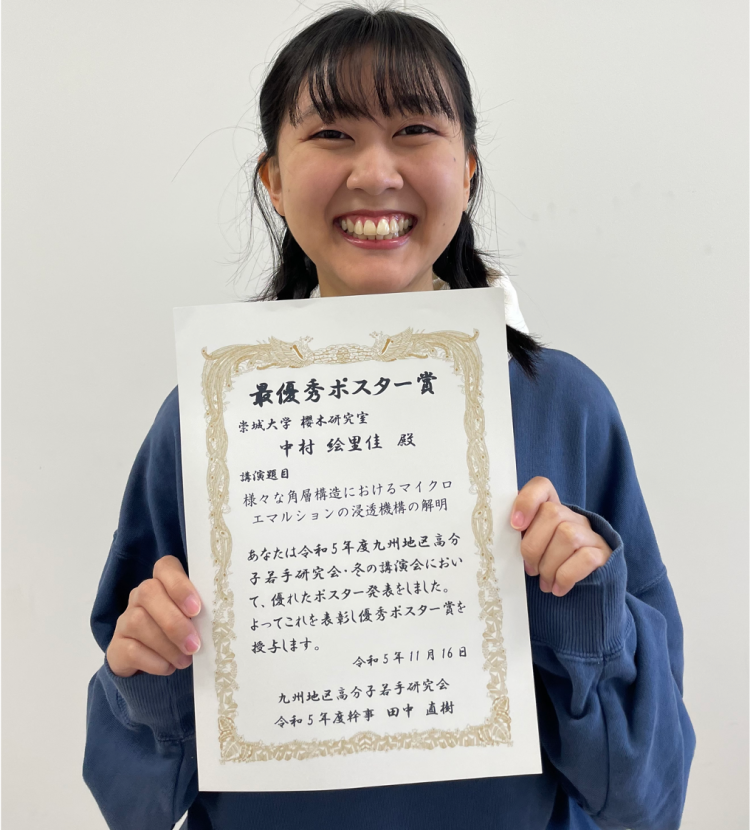 最優秀ポスター賞
崇城大学 櫻木研究室
中村 絵里佳 殿
講演題目
様々な角層構造におけるマイクロ
エマルションの浸透機構の解明
あなたは令和5年度九州地区高分
子若手研究会・冬の講演会におい
て、優れたポスター発表をしました。
よってこれを表彰し優秀ポスター賞を
授与します。
令和5年11月16日
九州地区高分子若手研究会
令和5年度幹事 田中 直樹